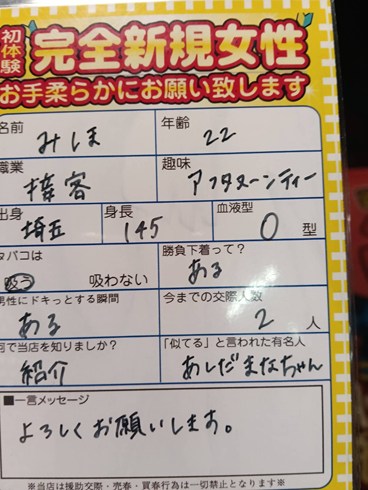 初体験
完全新規女性
お手柔らかにお願い致します
名前
みしほ
年齢
22
職業
接客
趣味
アフタヌーンティー
出身
埼玉
身長
145
血液型
O 型
タバコは
吸う 吸わない
勝負下着って?
ある
男性にドキっとする瞬間
ある
今までの交際人数
2 人
何で当店を知りましたか?
紹介
「似てる」と言われた有名人
あしだまなちゃん
■一言メッセージ
よろしくお願いします。
※当店は援助交際・売春・買春行為は一切禁止となります※